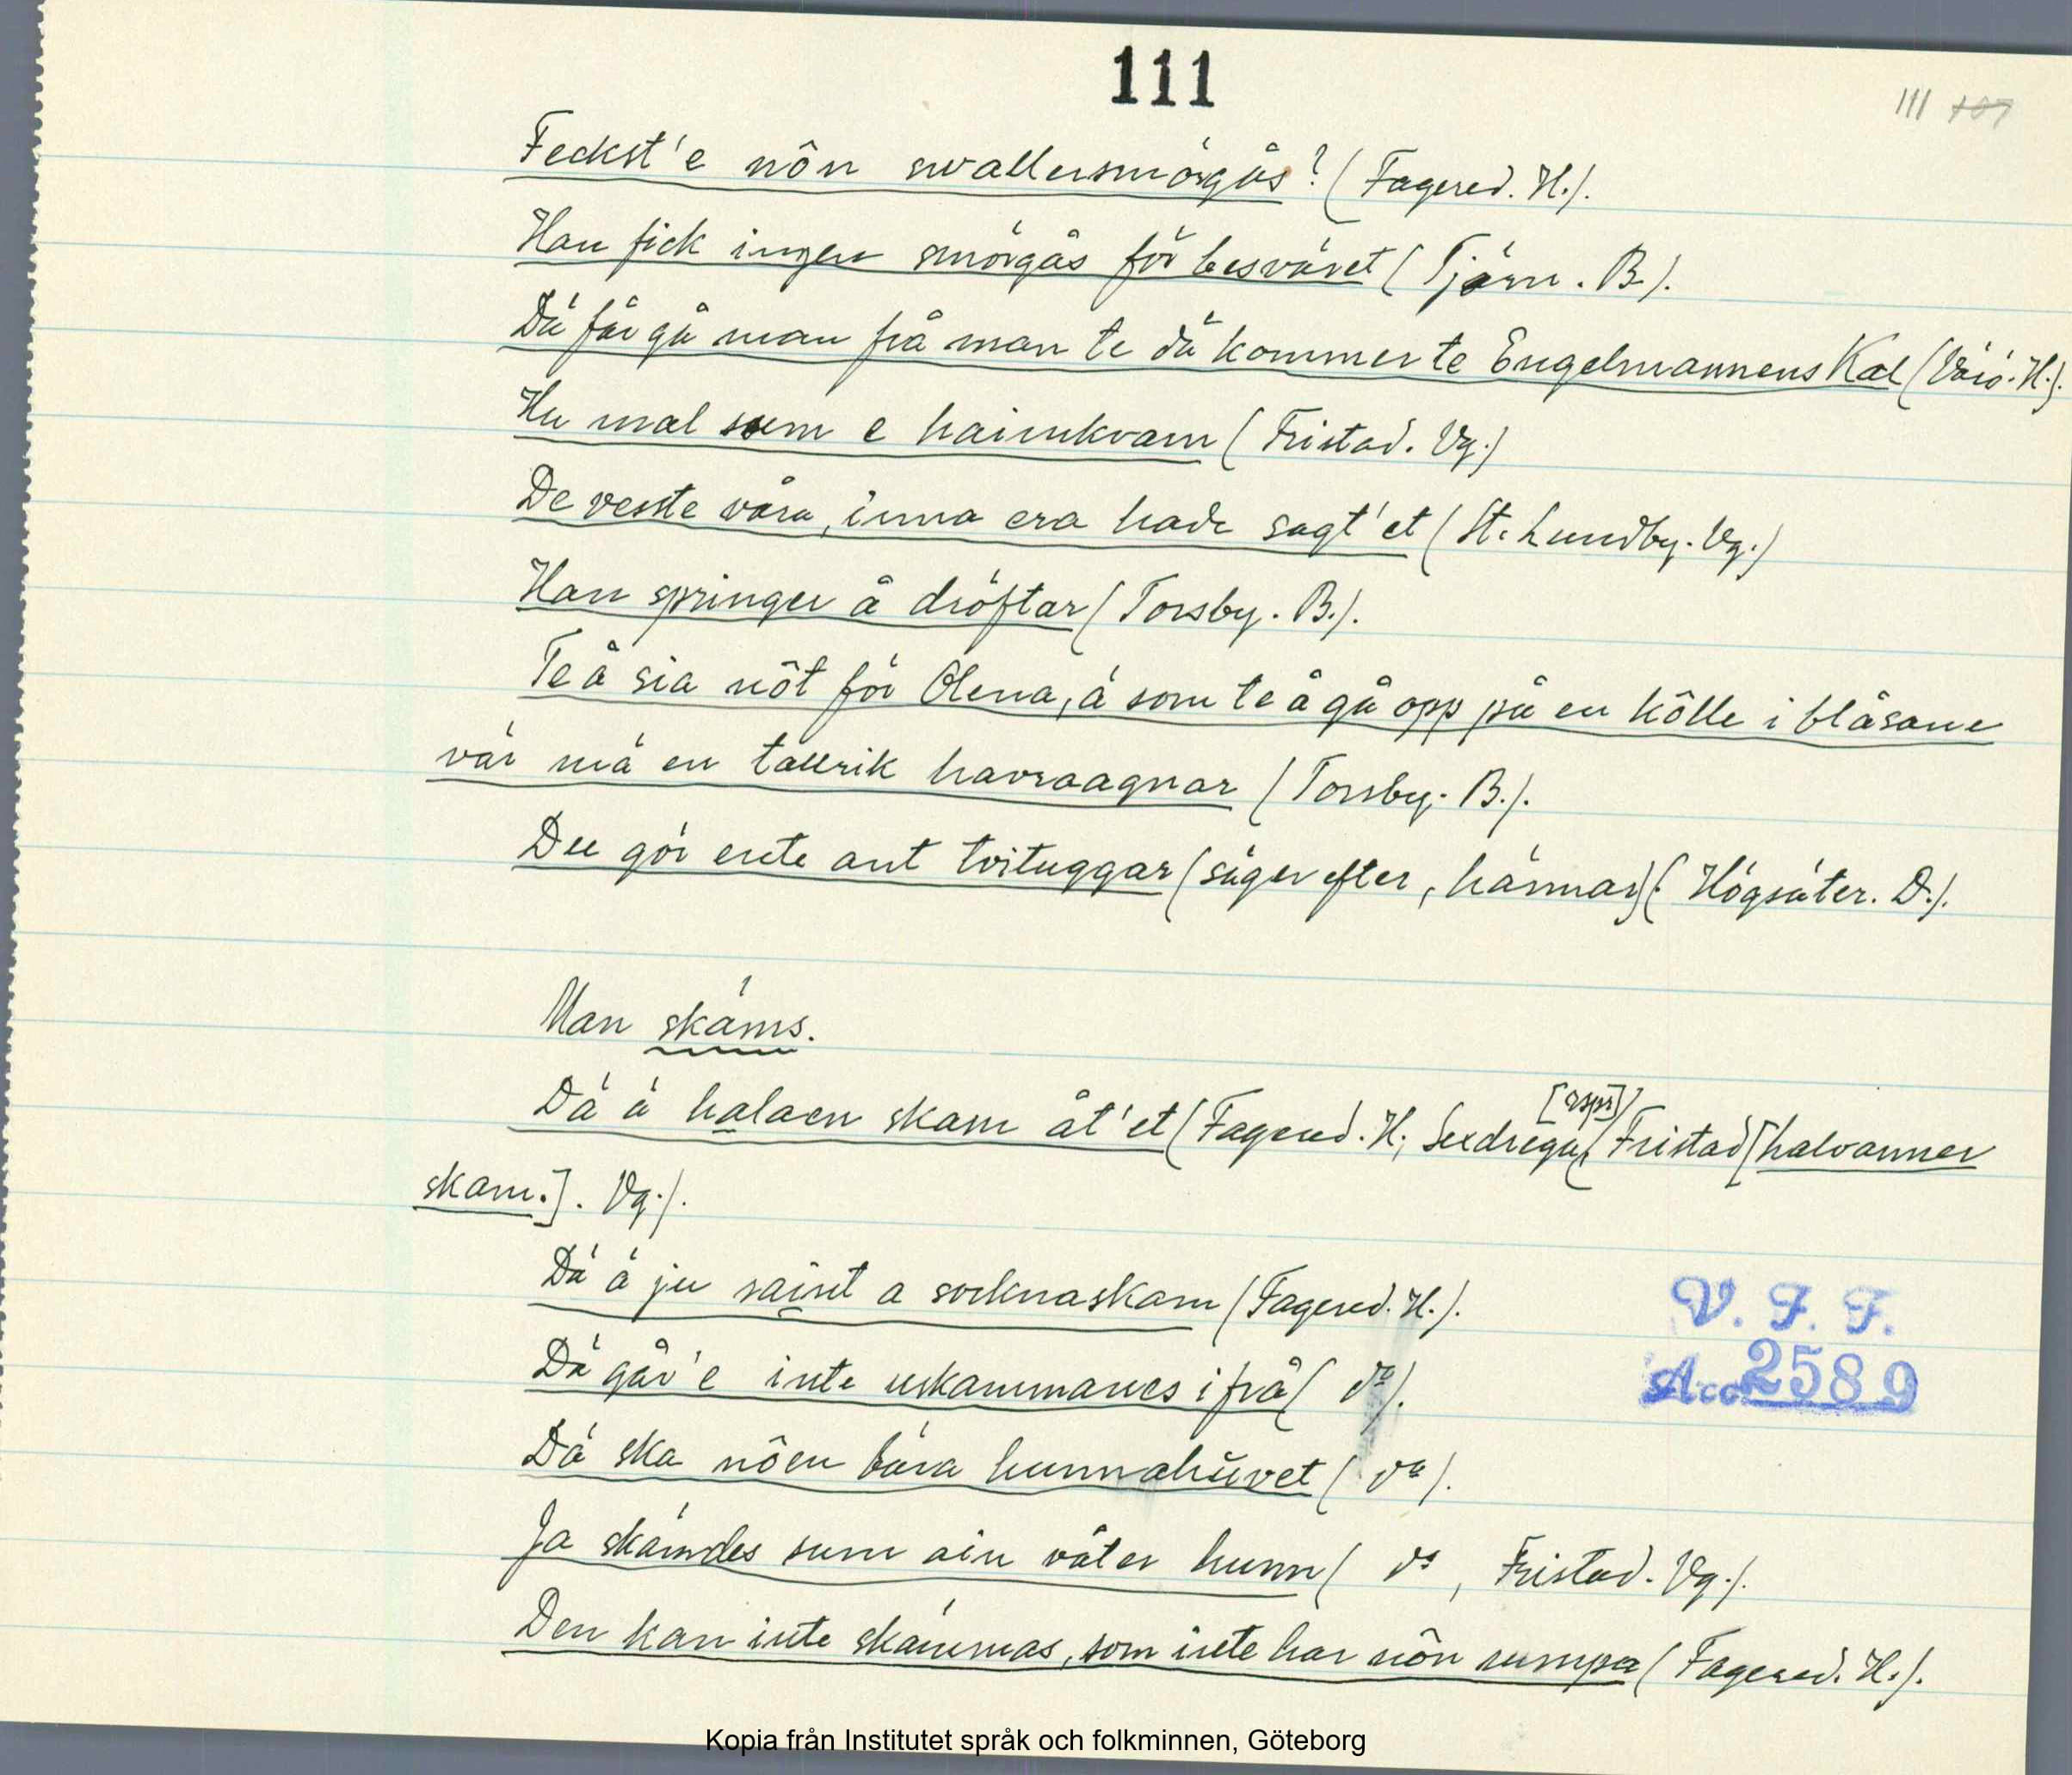 111
111 107
Feckst'e nôn svallersmörgås? (Fagered. H.).
Han fick ingen smörgås för besväret (Tjärn. B.).
Dä får gå man frå man te dä kommer te Engelmannens Kal (Värö. H.).
Hu mal sum e haimkvarn (Fristad. Vg.)
De vesste våra, inna era hade sagt'et (St. Lundby. Vg.)
Han springer å dröftar (Torsby. B.).
Te å sia nôt för Olena, ä som te å gå opp på en kôlle i blåsane
vär mä en tallrik havraagnar (Torsby. B.).
Du gör ente ant tvituggar (säger efter, härmar) (Högsäter. D.).
Man skäms.
Dä ä halaen skam åt'et (Fagered. H; Sexdrega, Fristad [halvanner
skam.]. Vg.).
Dä ä ju raint a socknaskam (Fagered. H.).
Dä går'e inte uskammanes ifrå (do).
Dä ska nôen bära hunnahuvet (do).
Ja skämdes sum ain våter hunn (do, Fristad. Vg.).
Den kan inte skämmas, som inte har nôn rumpa (Fagered. H.).
V. F. F.
Acc 2589
Kopia från Institutet språk och folkminnen, Göteborg